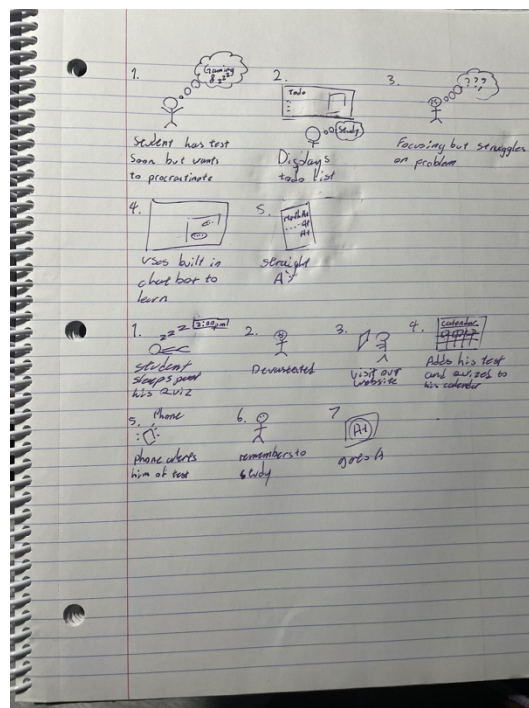 1.
Gaming
& zzz
Student has test
soon but wants
to procrastinate
2.
Todo
Study
Displays
todo list
3.
???
Focusing but struggles
on problem
4.
Uses built in
chat bot to
learn
5.
Math A+
A+
A+
straight
A's
1.
zzz 2:00pm
student
sleeps past
his quiz
2.
Devastated
3.
Visit our
website
4.
calendar
Adds his test
and quizes to
his calendar
5. Phone
phone alerts
him of test
6.
remembers to
study
7
A+
gets A